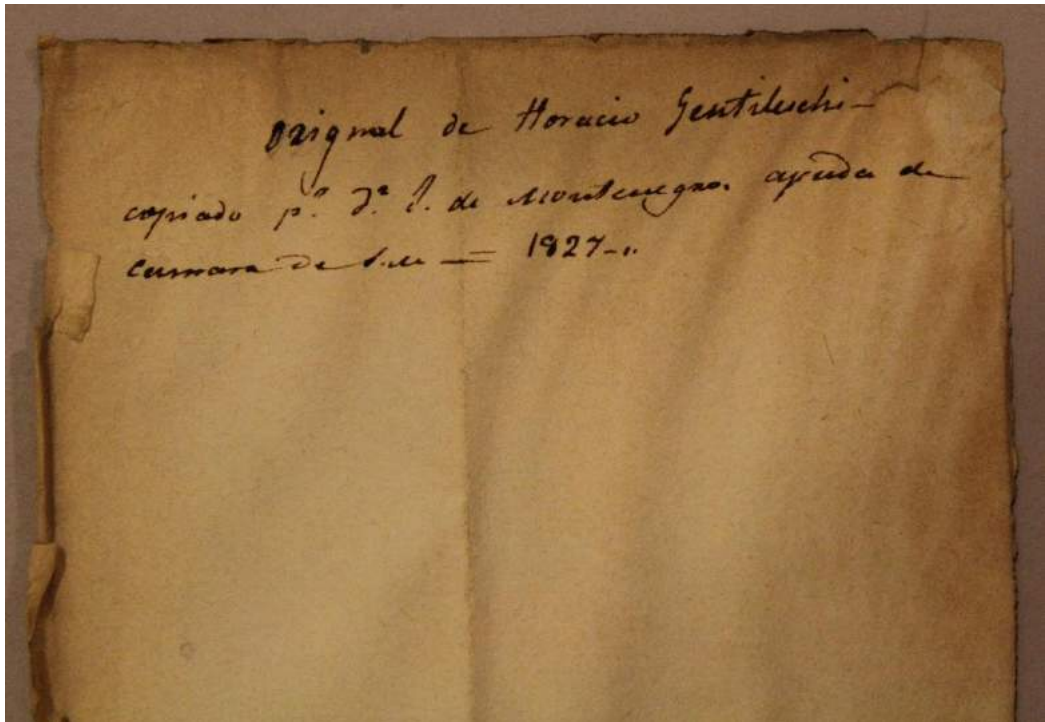 Original de Horacio Gentileschi-
copiado p.r D.n J. de Montenegro. ayuda de
Camara de S.M = 1827-..